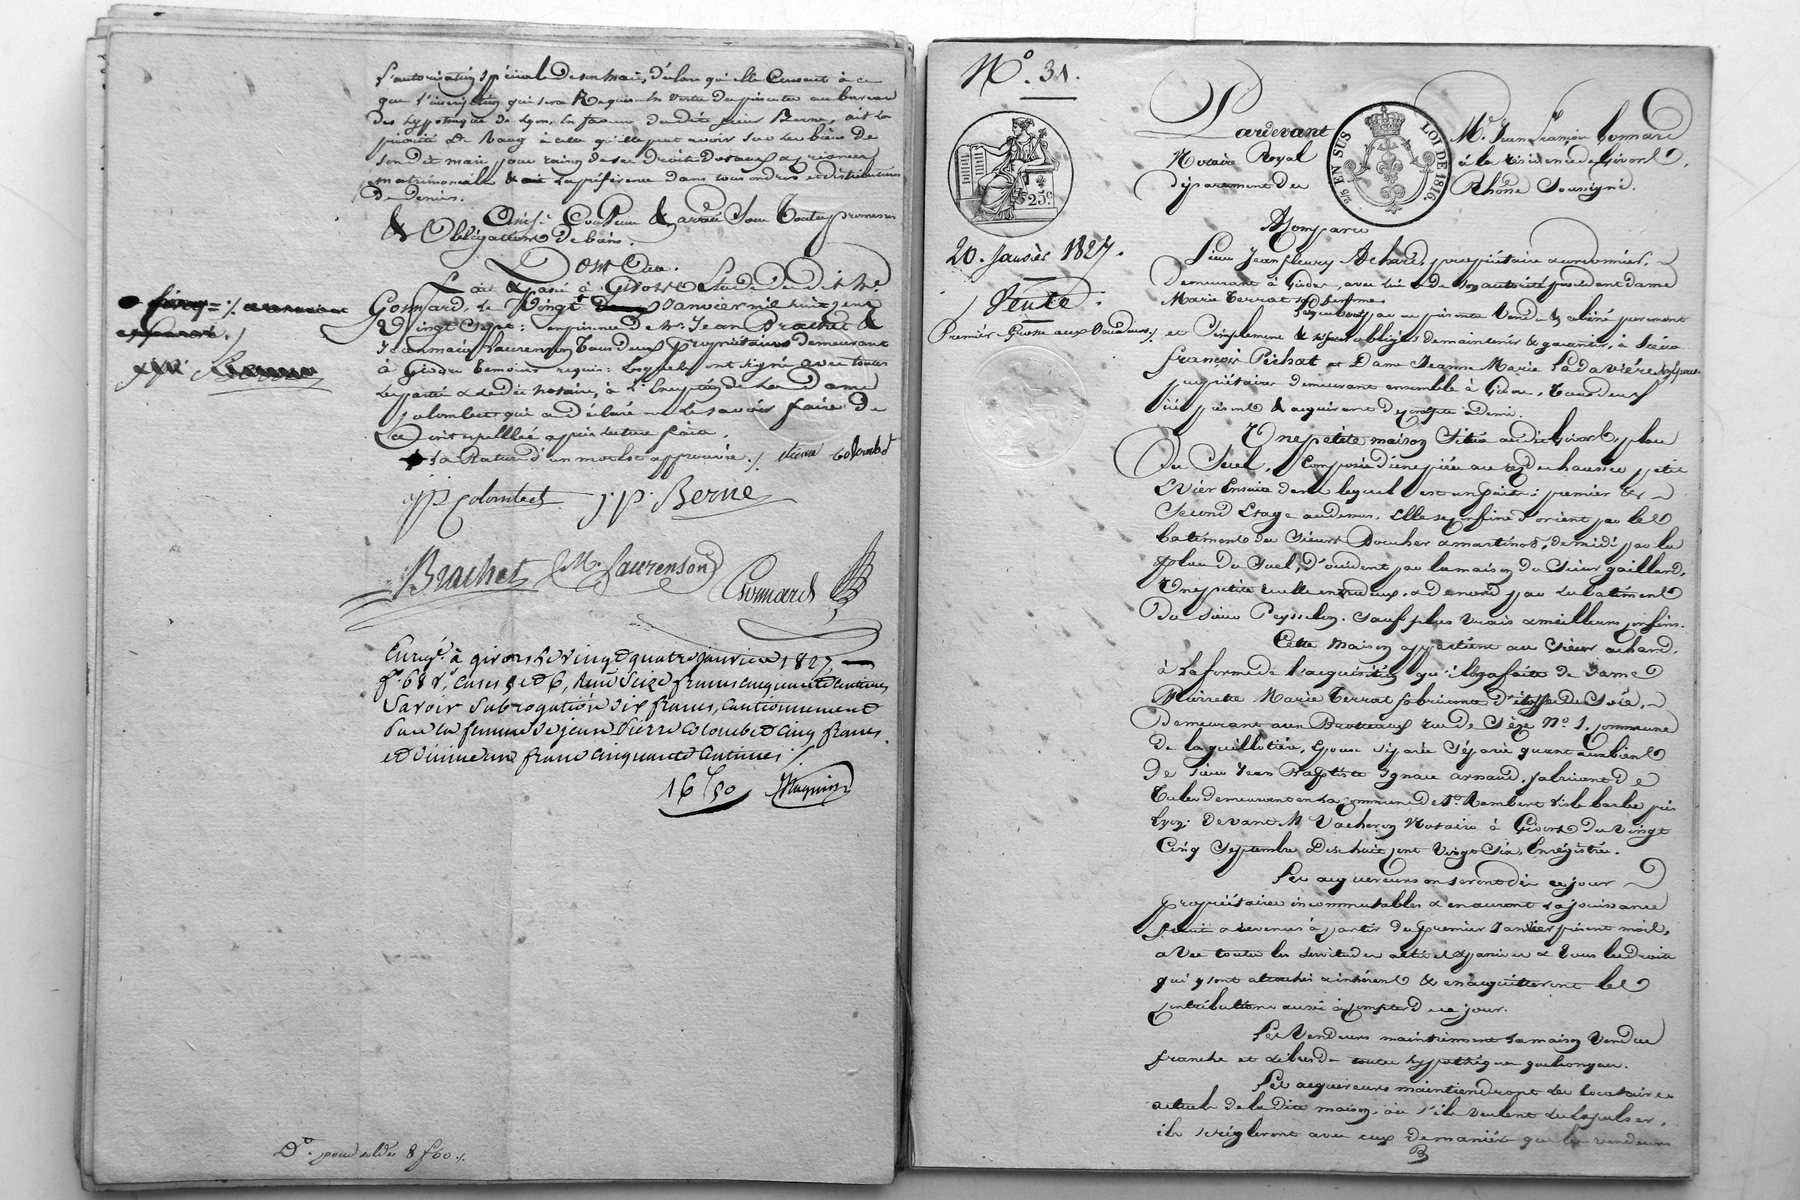 l'autorisation spéciale de son mari, déclare qu'elle consent à ce
que l'inscription qui sera Requise en vertu des présentes au bureau
des hypothèques de Lyon, en faveur dudit sieur Berne, ait la
priorité de Rang à celle qu'elle peut avoir sur les biens de
son dit mari pour raison de ses droits et
matrimoniales & la préférence dans tous ordres et distributions
de deniers.
Ainsi Convenu & arrêté Sous toutes promesses
& Obligations de biens.
Dont Acte.
Fait & passé à Givors Etude dudit Me
Gonnard, le Vingt Janvier mil huit cent
Vingt Sept: en présence de Mrs Jean Brachet &
Jean marie Laurenson tous deux propriétaires demeurant
à Givors témoins requis: lesquels ont signé avec toutes
les parties & ledit notaire, à l'Exception de la Dame
Colombet qui a déclaré ne le savoir faire de
ce interpellée après lecture faite.
La Rature d'un mot est approuvée ./ Pierre Colombet
JP Colombet J. P. Berne
Brachet M. Laurenson Gonnard
Enregé à Givors le vingt quatre janvier 1827,
fo 68 ro, cases 5 et 6, Reçu Seize francs cinquante centimes
Savoir Subrogation dix francs, cautionnement
par la femme de jean Pierre Colombet Cinq francs
et dixième un franc cinquante centimes ./.
16 f 50
Do pour solde 8 f 60 c.
No. 31.
25 EN SUS LOI DE 1816.
25c
20. Janvier 1827.
Vente.
Première Grosse aux Vendeurs ./
Pardevant Me Jean François Gonnard
Notaire Royal à la résidence de Givors,
département du Rhône Soussigné.
A Comparu
Sieur Jean fleury Achard, propriétaire & cordonnier,
demeurant à Givors, avec lui & de son autorité procédant dame
Marie Terrat sa femme.
Lesquels par ces présentes Vendent & aliènent purement
et Simplement & avec obligation de maintenir & garantir, à Sieur
françois Pichat et Dame Jeanne Marie Ladavière son épouse
propriétaires demeurant ensemble à Givors, tous deux
ici présents & acquérant de compte à demi.
Une petite maison Située audit Givors, place
Du Suel, Composée d'une pièce au rez de chaussée, petit
Evier Ensuite dans lequel est un puits; premier &
Second Etage au dessus. Elle se confine d'orient par les
batiments des Sieurs Boucher & martinot, de midi par la
place du Suel, d'occident par la maison du Sieur gaillard,
Une petite ruelle entre deux, & de nord par les bâtiments
du Sieur Peysselon. Sauf plus vrais & meilleurs confins.
Cette Maison appartient au Sieur achard,
à la forme de l'acquisition qu'il en a faite de Dame
Pierrette Marie Terrat fabricante d'étoffes de Soie,
Demeurant aux Brotteaux rue de Sèze No 1, commune
de la guillotière, épouse séparée Séparée quant aux biens
de sieur Jean Baptiste Ignace arnaud, fabricant de
tulles demeurant en la commune de St Rambert l'isle barbe près
Lyon; devant Me Vacheron Notaire à Givors du Vingt
Cinq Septembre Dix huit cent Vingt Six, Enregistrée.
Les acquéreurs en seront dès ce jour
propriétaires incommutables & en auront la jouissance
& revenus à partir du premier Janvier présent mois,
avec toutes les servitudes actives & passives & tous les droits
qui y sont attachés & inhérents & en acquitteront les
contributions aussi à compter de ce jour.
Les Vendeurs maintiennent la maison Vendue
franche et libre de toutes hypothèques quelconques.
Les acquéreurs maintiendront les locataires
actuels de la dite maison, ou s'ils veulent les expulser,
ils se règleront avec eux de manière que les vendeurs